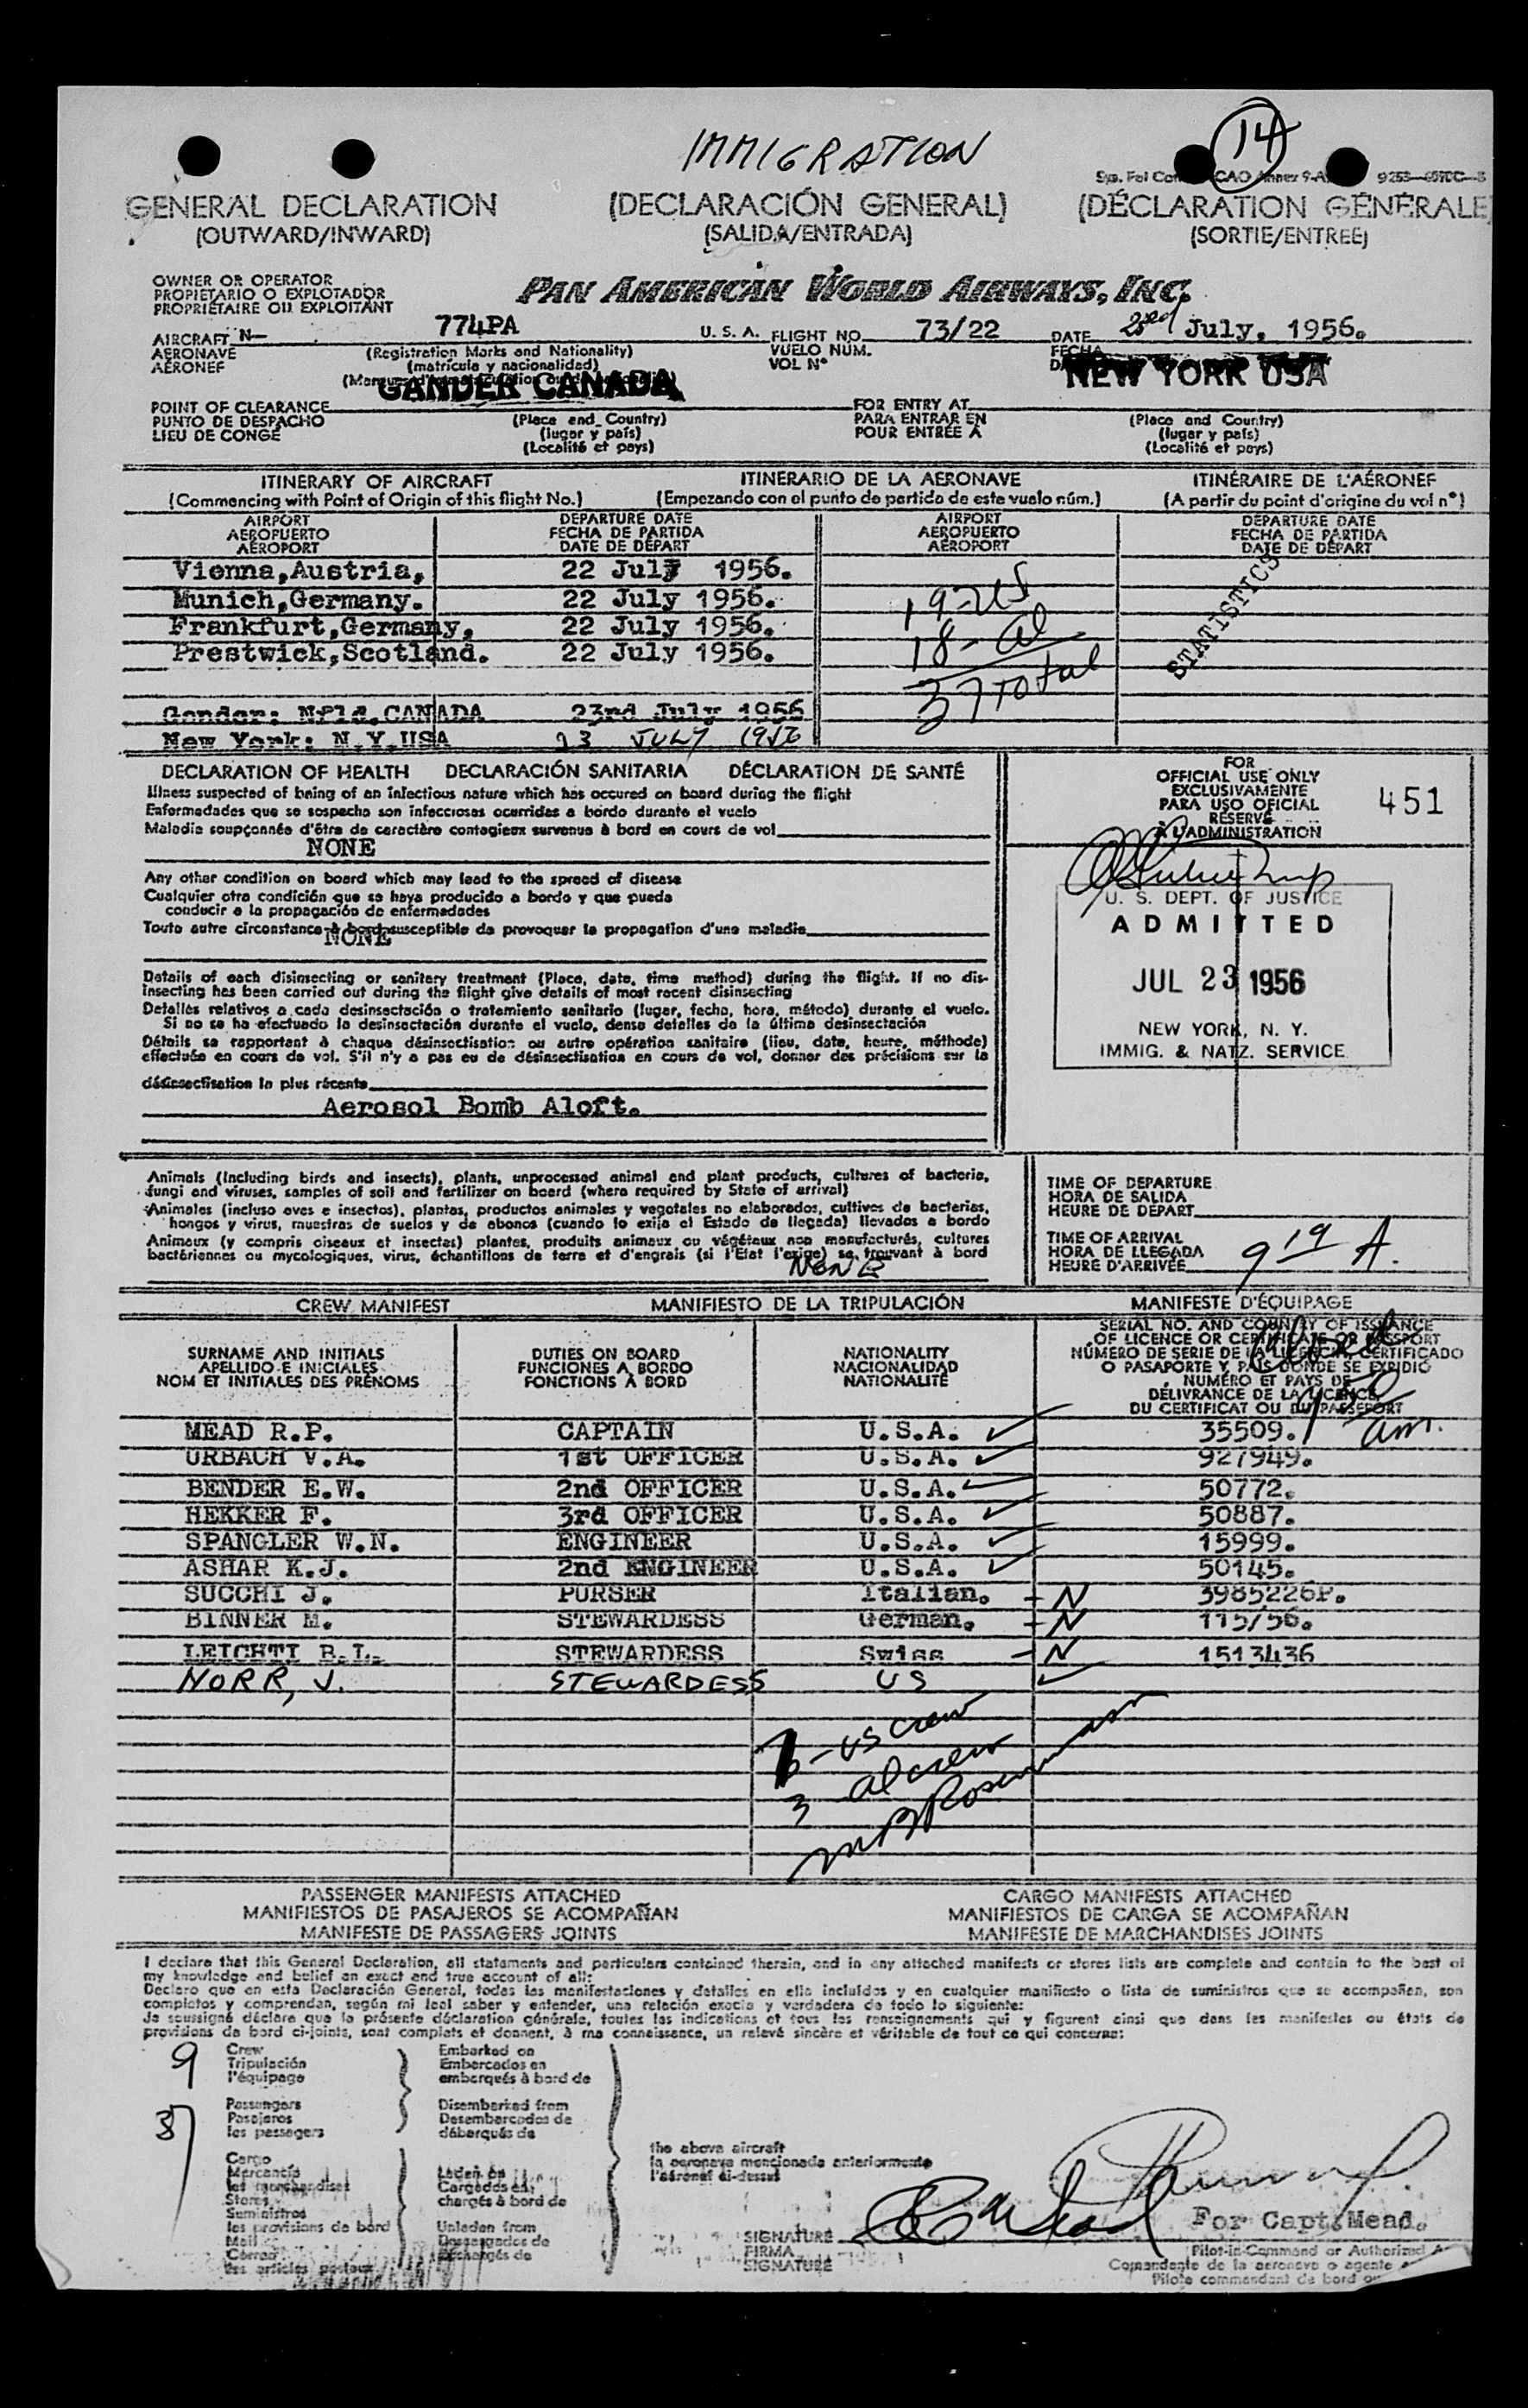 IMMIGRATION
14
GENERAL DECLARATION (DECLARACIÓN GENERAL) (DÉCLARATION GÉNÉRALE)
(OUTWARD/INWARD) (SALIDA/ENTRADA) (SORTIE/ENTREE)
OWNER OR OPERATOR
PROPIETARIO O EXPLOTADOR
PROPRIÉTAIRE OU EXPLOITANT
PAN AMERICAN WORLD AIRWAYS, INC.
AIRCRAFT N- 774PA U. S. A. FLIGHT NO. 73/22 DATE 23rd July, 1956.
AERONAVE (Registration Marks and Nationality) VUELO NÚM. FECHA
AÉRONEF (matrícula y nacionalidad) VOL N°
GANDER CANADA NEW YORK USA
POINT OF CLEARANCE FOR ENTRY AT
PUNTO DE DESPACHO (Place and Country) PARA ENTRAR EN (Place and Country)
LIEU DE CONGÉ (lugar y país) POUR ENTRÉE À (lugar y país)
(Localité et pays) (Localité et pays)
ITINERARY OF AIRCRAFT ITINERARIO DE LA AERONAVE ITINÉRAIRE DE L'AÉRONEF
(Commencing with Point of Origin of this flight No.) (Empezando con el punto de partida de este vuelo núm.) (A partir du point d'origine du vol n°)
AIRPORT DEPARTURE DATE AIRPORT DEPARTURE DATE
AEROPUERTO FECHA DE PARTIDA AEROPUERTO FECHA DE PARTIDA
AÉROPORT DATE DE DÉPART AÉROPORT DATE DE DÉPART
Vienna,Austria, 22 July 1956.
Munich,Germany. 22 July 1956. 19-US
Frankfurt,Germany, 22 July 1956. 18-al
Prestwick,Scotland. 22 July 1956.
37 total
STATISTICS
Gander: Nfld.CANADA 23rd July 1956
New York: N.Y.USA 23 JULY 1956
DECLARATION OF HEALTH DECLARACIÓN SANITARIA DÉCLARATION DE SANTÉ
Illness suspected of being of an infectious nature which has occured on board during the flight
Enfermedades que se sospecha son infecciosas ocurridas a bordo durante el vuelo
Maladie soupçonnée d'être de caractère contagieux survenue à bord en cours de vol
NONE
Any other condition on board which may lead to the spread of disease
Cualquier otra condición que se haya producido a bordo y que pueda
conducir a la propagación de enfermedades
Toute autre circonstance à bord susceptible de provoquer la propagation d'une maladie
NONE
Details of each disinsecting or sanitary treatment (Place, date, time method) during the flight. If no dis-
insecting has been carried out during the flight give details of most recent disinsecting
Detalles relativos a cada desinsectación o tratamiento sanitario (lugar, fecha, hora, método) durante el vuelo.
Si no se ha efectuado la desinsectación durante el vuelo, dense detalles de la última desinsectación
Détails se rapportant à chaque désinsectisation ou autre opération sanitaire (lieu, date, heure, méthode)
effectuée en cours de vol. S'il n'y a pas eu de désinsectisation en cours de vol, donner des précisions sur la
désinsectisation la plus récente
Aerosol Bomb Aloft.
FOR
OFFICIAL USE ONLY
EXCLUSIVAMENTE
PARA USO OFICIAL
RÉSERVÉ
À L'ADMINISTRATION
451
U. S. DEPT. OF JUSTICE
ADMITTED
JUL 23 1956
NEW YORK, N. Y.
IMMIG. & NATZ. SERVICE
Animals (including birds and insects), plants, unprocessed animal and plant products, cultures of bacteria,
fungi and viruses, samples of soil and fertilizer on board (where required by State of arrival)
Animales (incluso aves e insectos), plantas, productos animales y vegetales no elaborados, cultivos de bacterias,
hongos y virus, muestras de suelos y de abonos (cuando lo exija el Estado de llegada) llevados a bordo
Animaux (y compris oiseaux et insectes) plantes, produits animaux ou végétaux non manufacturés, cultures
bactériennes ou mycologiques, virus, échantillons de terre et d'engrais (si l'Etat l'exige) se trouvant à bord
NONE
TIME OF DEPARTURE
HORA DE SALIDA
HEURE DE DÉPART
TIME OF ARRIVAL
HORA DE LLEGADA
HEURE D'ARRIVÉE 9 19 A.
CREW MANIFEST MANIFIESTO DE LA TRIPULACIÓN MANIFESTE D'ÉQUIPAGE
SURNAME AND INITIALS DUTIES ON BOARD NATIONALITY
APELLIDO E INICIALES FUNCIONES A BORDO NACIONALIDAD
NOM ET INITIALES DES PRÉNOMS FONCTIONS À BORD NATIONALITÉ
SERIAL NO. AND COUNTRY OF ISSUANCE
OF LICENCE OR CERTIFICATE OR PASSPORT
NÚMERO DE SERIE DE LA LICENCIA, CERTIFICADO
O PASAPORTE Y PAÍS DONDE SE EXPIDIÓ
NUMÉRO ET PAYS DE
DÉLIVRANCE DE LA LICENCE,
DU CERTIFICAT OU DU PASSEPORT
am.
MEAD R.P. CAPTAIN U.S.A. 35509.
URBACH V.A. 1st OFFICER U.S.A. 927949.
BENDER E.W. 2nd OFFICER U.S.A. 50772.
HEKKER F. 3rd OFFICER U.S.A. 50887.
SPANGLER W.N. ENGINEER U.S.A. 15999.
ASHAR K.J. 2nd ENGINEER U.S.A. 50145.
SUCCHI J. PURSER Italian. - N 3985226P.
BINNER M. STEWARDESS German. - N 115/56.
LEICHTI B.L. STEWARDESS Swiss - N 1513436
NORR, J. STEWARDESS US
7 - US crew
3 al crew
PASSENGER MANIFESTS ATTACHED CARGO MANIFESTS ATTACHED
MANIFIESTOS DE PASAJEROS SE ACOMPAÑAN MANIFIESTOS DE CARGA SE ACOMPAÑAN
MANIFESTE DE PASSAGERS JOINTS MANIFESTE DE MARCHANDISES JOINTS
I declare that this General Declaration, all statements and particulars contained therein, and in any attached manifests or stores lists are complete and contain to the best of
my knowledge and belief an exact and true account of all:
Declaro que en esta Declaración General, todas las manifestaciones y detalles en ella incluidos y en cualquier manifiesto o lista de suministros que se acompañen, son
completos y comprendan, según mi leal saber y entender, una relación exacta y verdadera de todo lo siguiente:
Je soussigné déclare que la présente déclaration générale, toutes les indications et tous les renseignements qui y figurent ainsi que dans les manifestes ou états de
provisions de bord ci-joints, sont complets et donnent, à ma connaissance, un relevé sincère et véritable de tout ce qui concerne:
9 Crew Embarked on
Tripulación Embarcados en
l'équipage embarqués à bord de
37 Passengers Disembarked from
Pasajeros Desembarcados de
les passagers débarqués de
Cargo
Mercancía Laden on
les marchandises Cargados en
Stores chargés à bord de
Suministros
les provisions de bord Unladen from
Mail Descargados de
Correo déchargés de
les articles postaux
the above aircraft
la aeronave mencionada anteriormente
l'aéronef ci-dessus
SIGNATURE
FIRMA
SIGNATURE
For Capt.Mead.
Pilot-in-Command or Authorized
Comandante de la aeronave o agente
Pilote commandant de bord